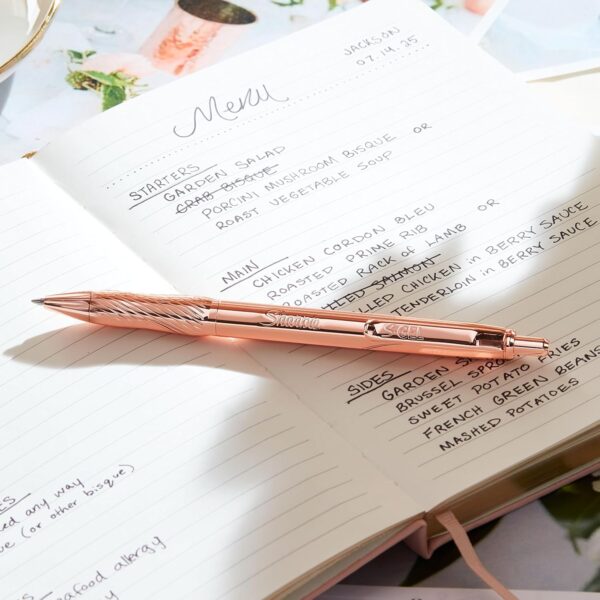 JACKSON
07.14.25
Menu
STARTERS
GARDEN SALAD
CRAB BISQUE
PORCINI MUSHROOM BISQUE OR
ROAST VEGETABLE SOUP
MAIN
CHICKEN CORDON BLEU
ROASTED PRIME RIB
ROASTED RACK OF LAMB OR
LLED SALMON
LLED CHICKEN in BERRY SAUCE
TENDERLOIN in BERRY SAUCE
Sharpie S·GEL
SIDES
GARDEN
BRUSSEL
SWEET POTATO FRIES
FRENCH GREEN BEANS
MASHED POTATOES
any way
(or other bisque)
eafood allergy